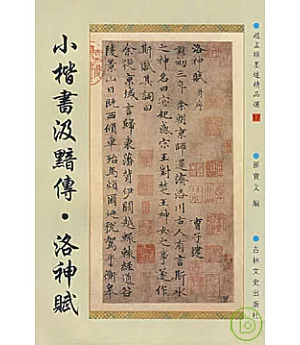 趙孟頫墨迹精品選
孫寶文 編
吉林文史出版社
洛神賦 并序
曹子建
黃初三年余朝京師還濟洛川古人有言斯水
之神名曰宓妃感宋玉對楚王神女之事遂作
斯賦其詞曰
余從京域言歸東藩背伊闕越轘轅經通谷
陵景山日既西傾車殆馬煩爾迺稅駕乎蘅皋
小楷書汲黯傳・洛神賦